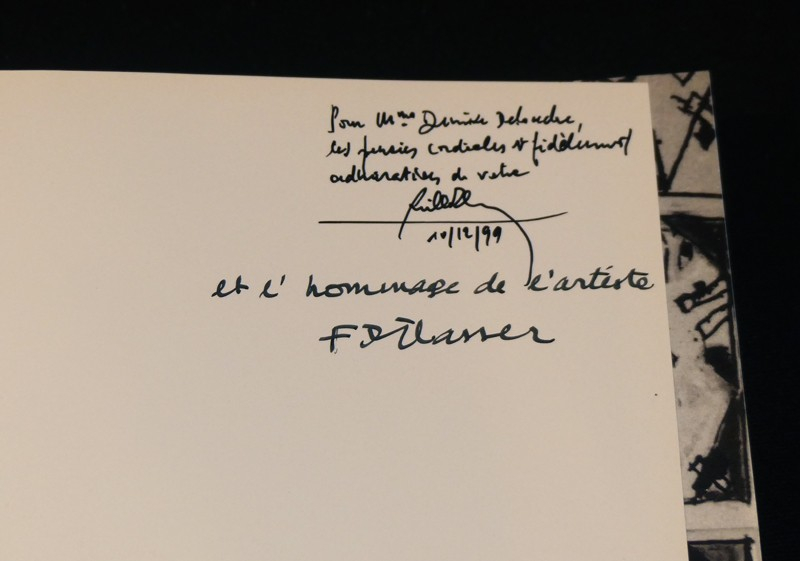 Pour Mme Denise Delouche,
les pensées cordiales et fidèlement
admiratives de votre
10/12/99
et l'hommage de l'artiste